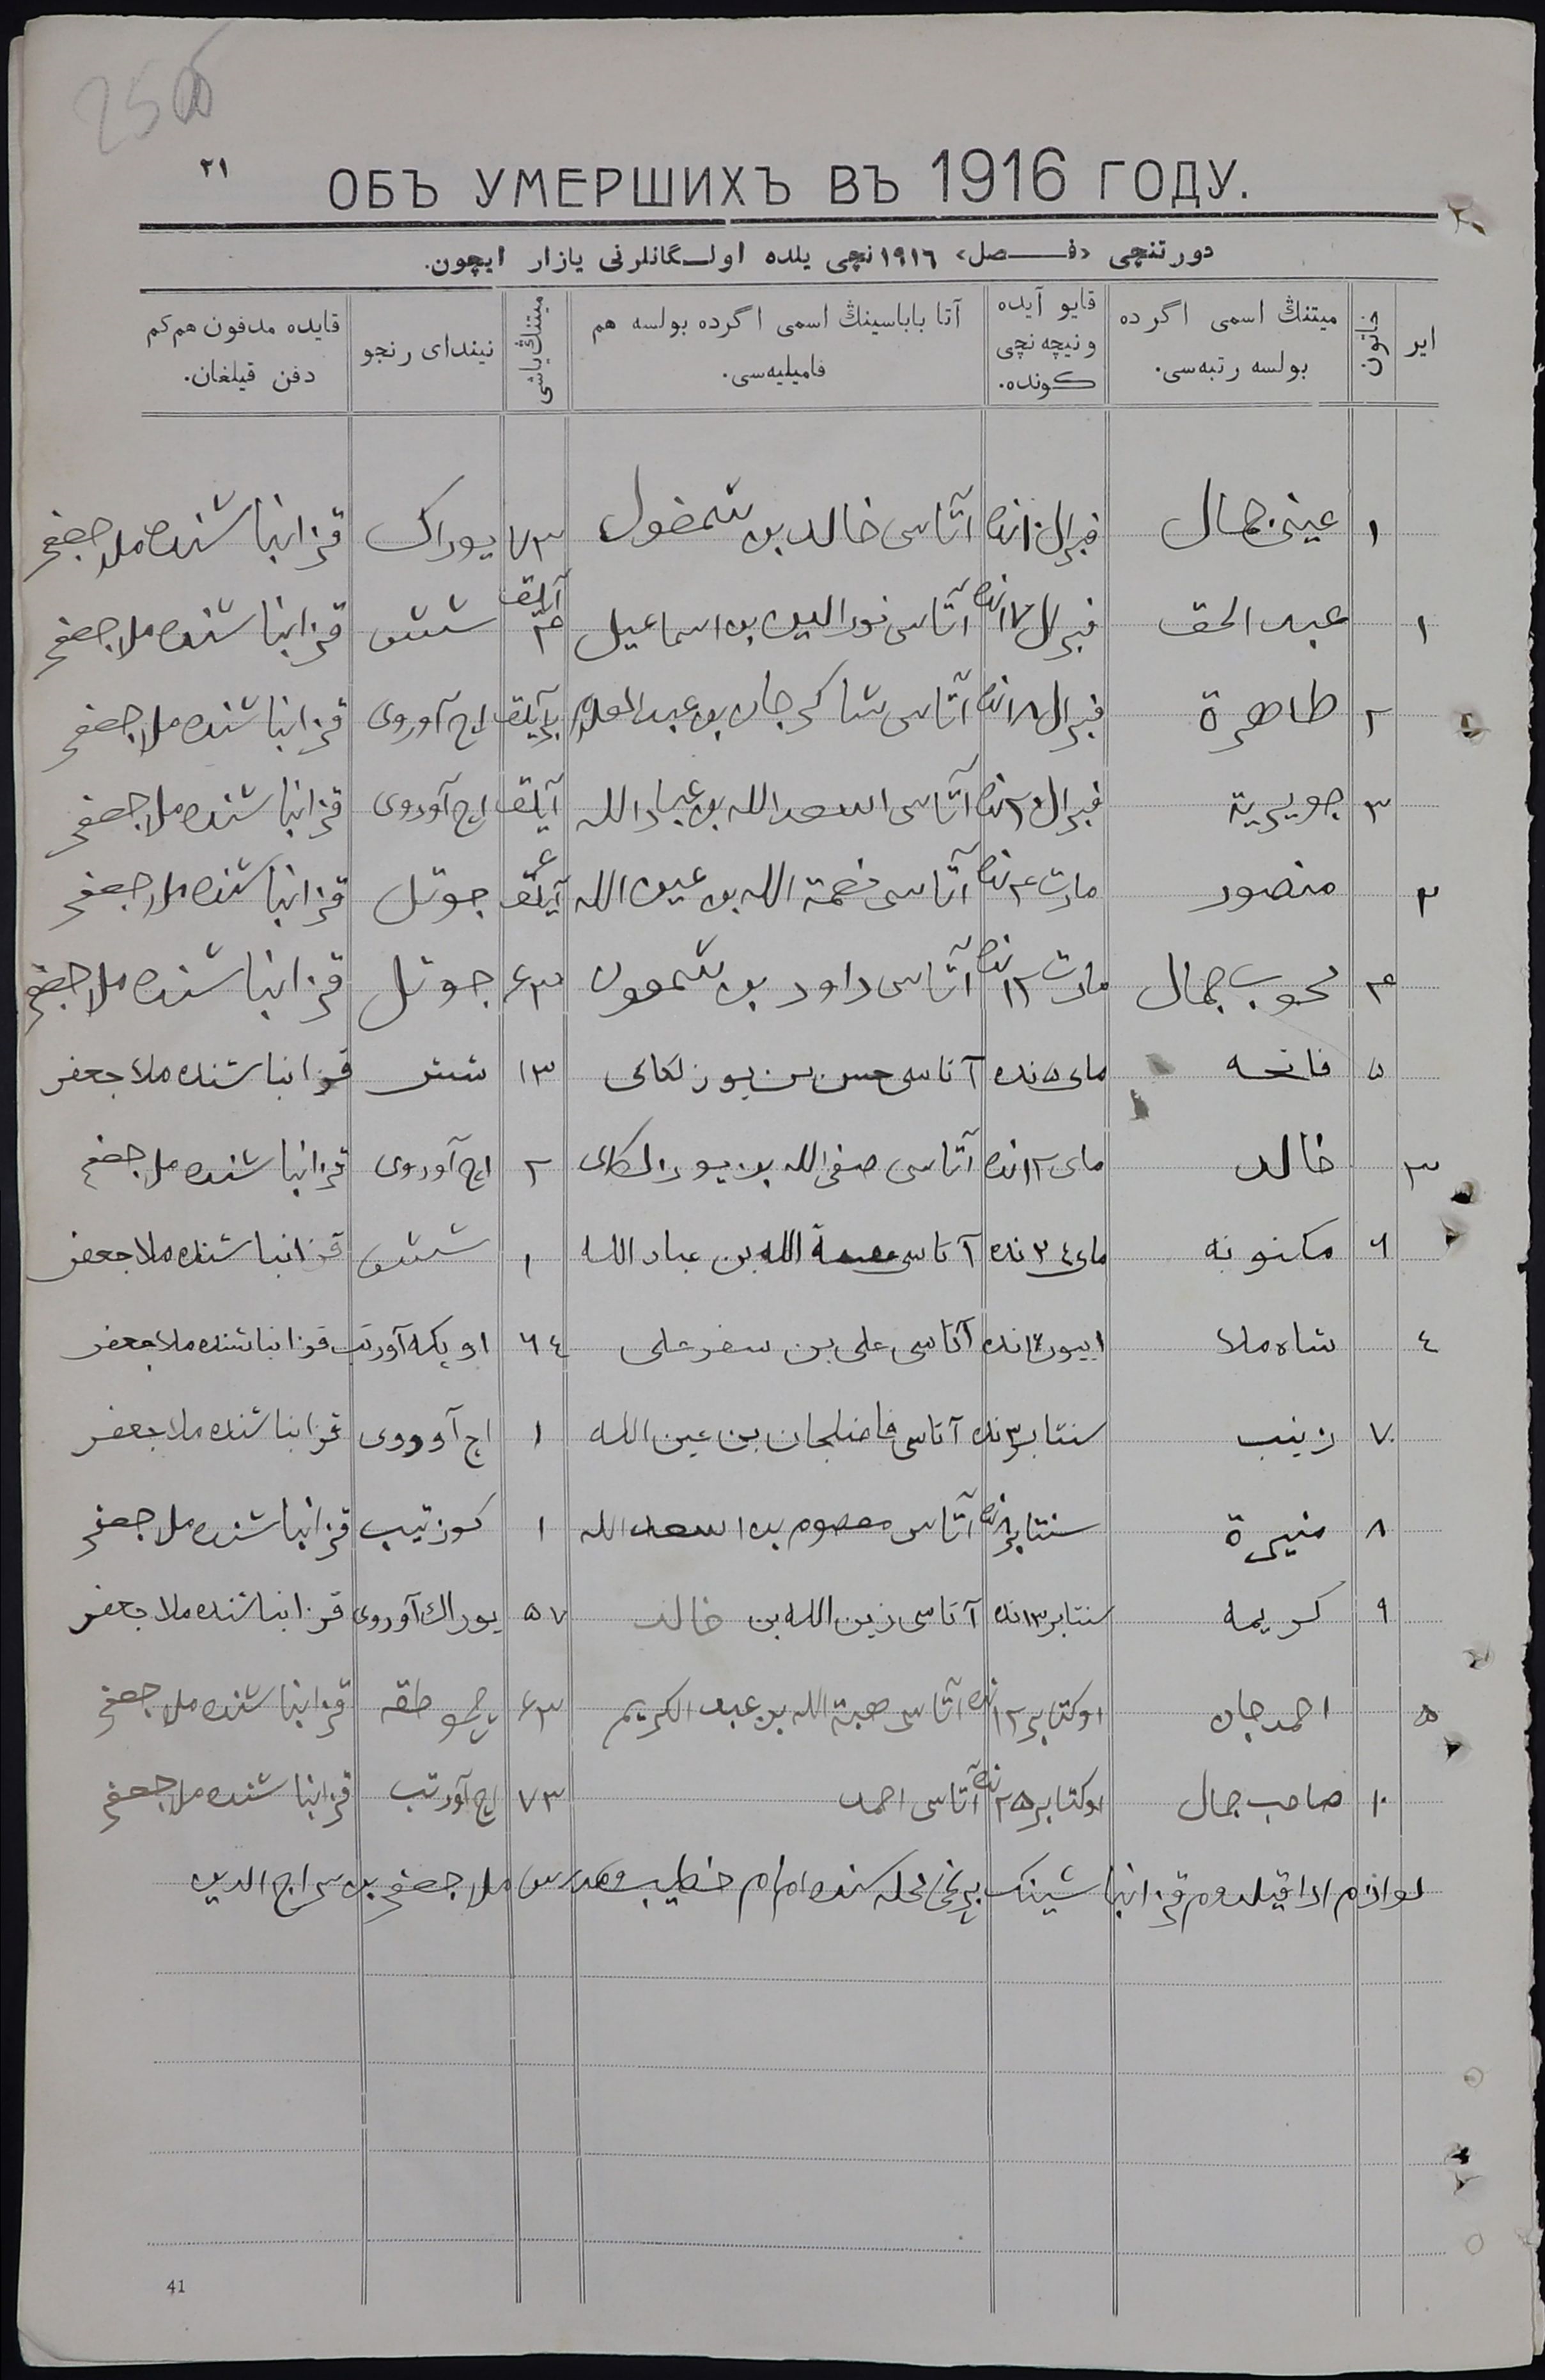 25об
٢١
ОБЪ УМЕРШИХЪ ВЪ 1916 ГОДУ.
دورتنچی «فـــصل» ١٩١٦ نچی یلده اولـگانلرنی یازار ایچون.
ایر خاتون میتنڭ اسمی اگرده بولسه رتبه‌سی. قایو آیده و نیچه نچی کونده. آتا باباسینڭ اسمی اگرده بولسه هم فامیلیه‌سی. میتنڭ یاشی نیندای رنجو قایده مدفون هم کم دفن قیلغان.
١ عینی جمال فبرال ١٠نده آتاسی خالد بن شمغول ٧٣ یوراک قزانباشنده ملا جعفر
١ عبد الحق فبرال ١٧نده آتاسی نورالدین بن اسماعیل ٣ آیلق شش قزانباشنده ملا جعفر
٢ طاهرة فبرال ١٨نده آتاسی شاکرجان بن عبد العلام بر آیلق اچ آوروی قزانباشنده ملا جعفر
٣ جویریة فبرال ٢٠نده آتاسی اسعد الله بن عباد الله آیلق اچ آوروی قزانباشنده ملا جعفر
٢ منصور مارت ٤نده آتاسی نعمة الله بن عین الله ٤ آیلق جوتل قزانباشنده ملا جعفر
٤ محبوب جمال مارت ١٢نده آتاسی داود بن شمعون ٤٣ جوتل قزانباشنده ملا جعفر
۵ فاتحه مای ۵نده آتاسی حسن بن یوزلکای ١٣ شش قزانباشنده ملا جعفر
٣ خالد مای ١٢نده آتاسی صفی الله بن یوزلکای ٢ اچ آوروی قزانباشنده ملا جعفر
٦ مکنونه مای ٢٤نده آتاسی عصمة الله بن عباد الله ١ شش قزانباشنده ملا جعفر
٤ شاه ملا اییون ١٤نده آتاسی علی بن سفر علی ٦٤ اوپکه آورتب قزانباشنده ملا جعفر
٧ زینب سنتابر ٣نده آتاسی فاضلجان بن عین الله ١ اچ آوروی قزانباشنده ملا جعفر
٨ منیرة سنتابر ٨نده آتاسی معصوم بن اسعد الله ١ کوز تیب قزانباشنده ملا جعفر
٩ کریمه سنتابر ١٣نده آتاسی زین الله بن خالد ۵٧ یوراك آوروی قزانباشنده ملا جعفر
۵ احمدجان اوکتابر ١٢نده آتاسی هبة الله بن عبد الکریم ٤٣ قزانباشنده ملا جعفر
١٠ صاحب جمال اوکتابر ٢۵نده آتاسی احمد ٧٣ اچ آورتب قزانباشنده ملا جعفر
لوازم ادا قیلدوم قزانباشینڭ برنچی محله‌سنده امام خطیب و مدرس ملا جعفر بن سراج الدین
41